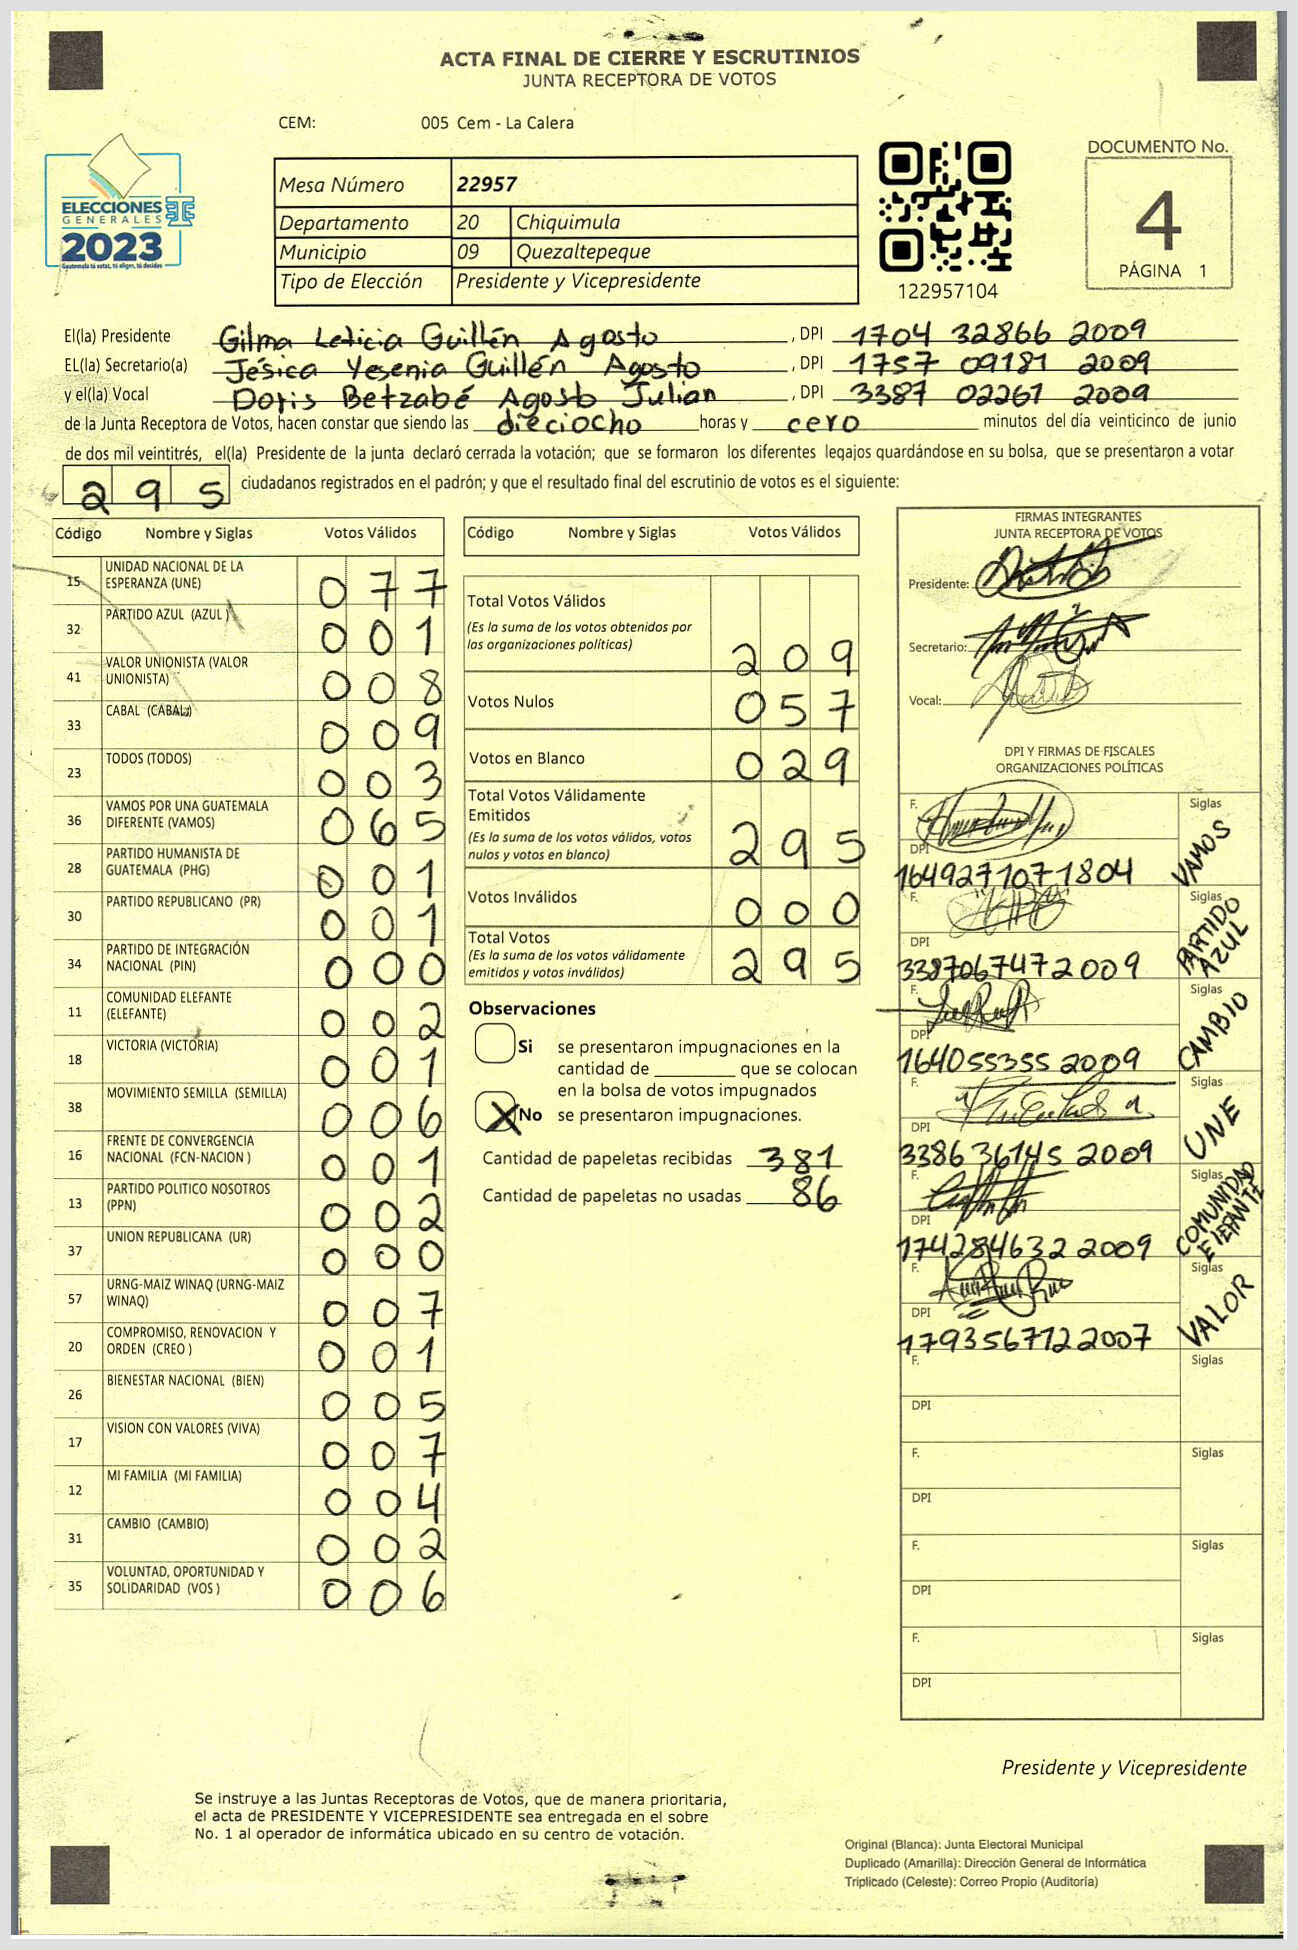 ACTA FINAL DE CIERRE Y ESCRUTINIOS
JUNTA RECEPTORA DE VOTOS
CEM: 005 Cem - La Calera
ELECCIONES
GENERALES
2023
Guatemala tú votas, tú eliges, tú decides
Mesa Número 22957
Departamento 20 Chiquimula
Municipio 09 Quezaltepeque
Tipo de Elección Presidente y Vicepresidente
122957104
DOCUMENTO No.
4
PÁGINA 1
El(la) Presidente Gilma Leticia Guillén Agosto , DPI 1704 32866 2009
EL(la) Secretario(a) Jésica Yesenia Guillén Agosto , DPI 1757 09181 2009
y el(la) Vocal Doris Betzabé Agosto Julian , DPI 3387 02261 2009
de la Junta Receptora de Votos, hacen constar que siendo las dieciocho horas y cero minutos del día veinticinco de junio
de dos mil veintitrés, el(la) Presidente de la junta declaró cerrada la votación; que se formaron los diferentes legajos quardándose en su bolsa, que se presentaron a votar
295 ciudadanos registrados en el padrón; y que el resultado final del escrutinio de votos es el siguiente:
Código Nombre y Siglas Votos Válidos
15 UNIDAD NACIONAL DE LA ESPERANZA (UNE) 077
32 PARTIDO AZUL (AZUL ) 001
41 VALOR UNIONISTA (VALOR UNIONISTA) 008
33 CABAL (CABAL) 009
23 TODOS (TODOS) 003
36 VAMOS POR UNA GUATEMALA DIFERENTE (VAMOS) 065
28 PARTIDO HUMANISTA DE GUATEMALA (PHG) 001
30 PARTIDO REPUBLICANO (PR) 001
34 PARTIDO DE INTEGRACIÓN NACIONAL (PIN) 000
11 COMUNIDAD ELEFANTE (ELEFANTE) 002
18 VICTORIA (VICTORIA) 001
38 MOVIMIENTO SEMILLA (SEMILLA) 006
16 FRENTE DE CONVERGENCIA NACIONAL (FCN-NACION ) 001
13 PARTIDO POLITICO NOSOTROS (PPN) 002
37 UNION REPUBLICANA (UR) 000
57 URNG-MAIZ WINAQ (URNG-MAIZ WINAQ) 007
20 COMPROMISO, RENOVACION Y ORDEN (CREO ) 001
26 BIENESTAR NACIONAL (BIEN) 005
17 VISION CON VALORES (VIVA) 007
12 MI FAMILIA (MI FAMILIA) 004
31 CAMBIO (CAMBIO) 002
35 VOLUNTAD, OPORTUNIDAD Y SOLIDARIDAD (VOS ) 006
Código Nombre y Siglas Votos Válidos
Total Votos Válidos
(Es la suma de los votos obtenidos por
las organizaciones políticas) 209
Votos Nulos 057
Votos en Blanco 029
Total Votos Válidamente
Emitidos
(Es la suma de los votos válidos, votos
nulos y votos en blanco) 295
Votos Inválidos 000
Total Votos
(Es la suma de los votos válidamente
emitidos y votos inválidos) 295
Observaciones
Si se presentaron impugnaciones en la
cantidad de ________ que se colocan
en la bolsa de votos impugnados
X No se presentaron impugnaciones.
Cantidad de papeletas recibidas 381
Cantidad de papeletas no usadas 86
FIRMAS INTEGRANTES
JUNTA RECEPTORA DE VOTOS
Presidente:
Secretario:
Vocal:
DPI Y FIRMAS DE FISCALES
ORGANIZACIONES POLÍTICAS
F. Siglas VAMOS
DPI 1649271071804
F. Siglas PARTIDO AZUL
DPI 3387067472009
F. Siglas CAMBIO
DPI 164055355 2009
F. Siglas UNE
DPI 3386 36145 2009
F. Siglas COMUNIDAD ELEFANTE
DPI 174284632 2009
F. Siglas VALOR
DPI 1793567122007
F. Siglas
DPI
F. Siglas
DPI
F. Siglas
DPI
F. Siglas
DPI
Presidente y Vicepresidente
Se instruye a las Juntas Receptoras de Votos, que de manera prioritaria,
el acta de PRESIDENTE Y VICEPRESIDENTE sea entregada en el sobre
No. 1 al operador de informática ubicado en su centro de votación.
Original (Blanca): Junta Electoral Municipal
Duplicado (Amarilla): Dirección General de Informática
Triplicado (Celeste): Correo Propio (Auditoría)